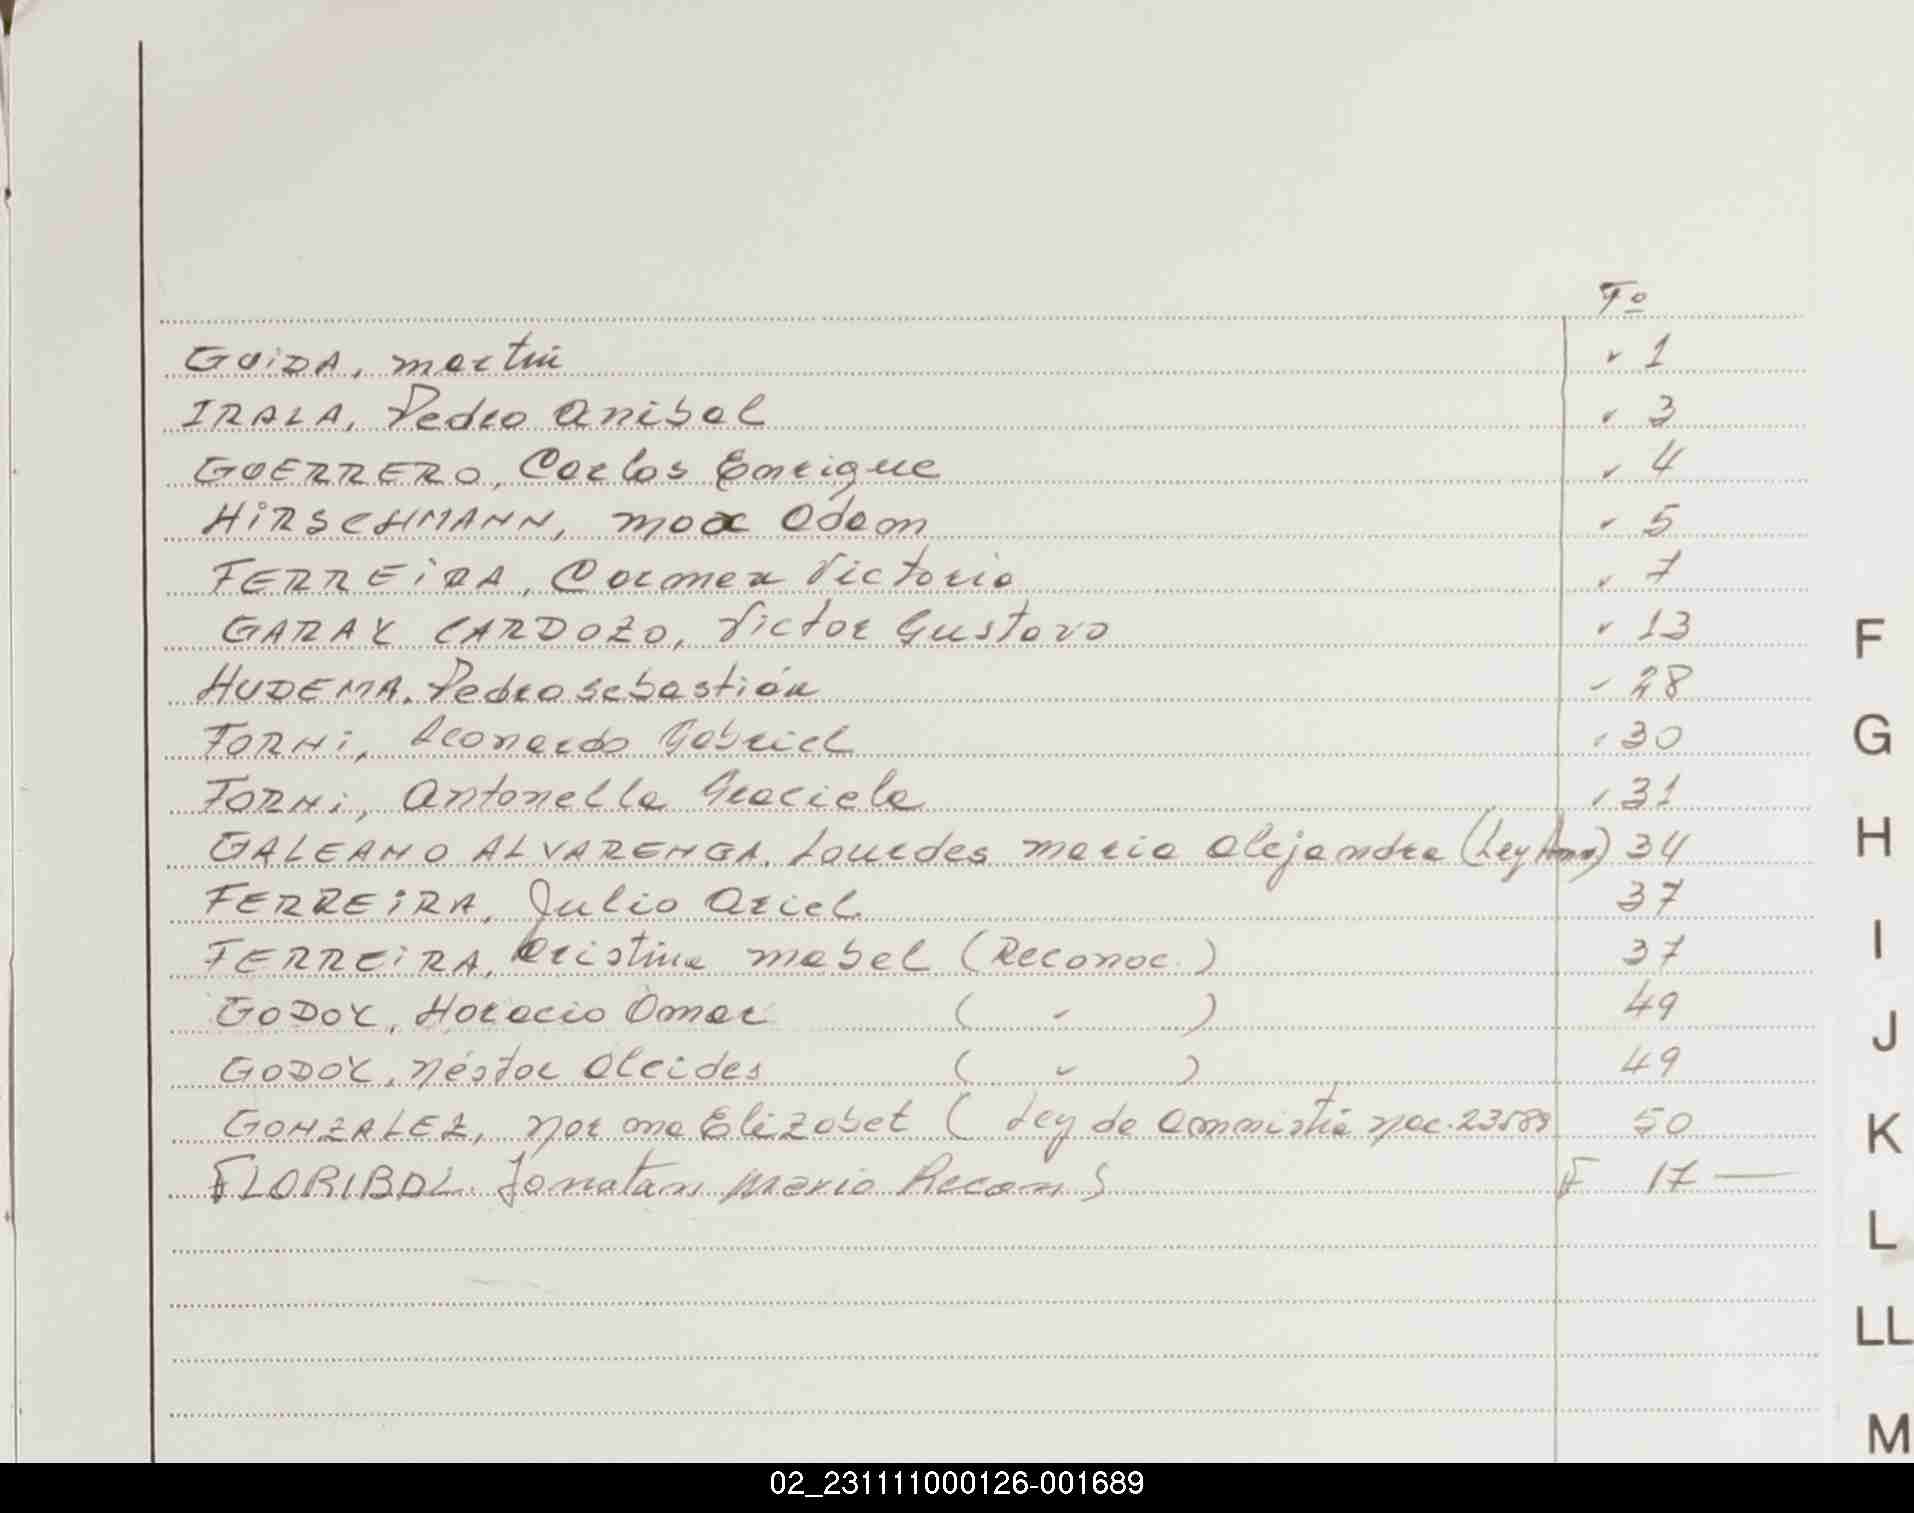 Fº
GUIDA, Martín ✓ 1
IRALA, Pedro Anibal ✓ 3
GUERRERO, Carlos Enrique ✓ 4
HIRSCHMANN, Max Adam ✓ 5
FERREIRA, Carmen Victoria ✓ 7
GARAY CARDOZO, Victor Gustavo ✓ 13
HUDEMA, Pedro Sebastián ✓ 28
FORNI, Leonardo Gabriel ✓ 30
FORNI, Antonella Graciela ✓ 31
GALEANO ALVARENGA, Lourdes Maria Alejandra (Ley Amn) 34
FERREIRA, Julio Ariel 37
FERREIRA, Cristina Mabel (Reconoc.) 37
GODOY, Horacio Omar ( " ) 49
GODOY, Néstor Alcides ( " ) 49
GONZALEZ, Norma Elizabet ( Ley de Ammistía Nac. 23589 50
FLORIBAL Jonatan Mario Recon F 17 —
F
G
H
I
J
K
L
LL
M
02_231111000126-001689